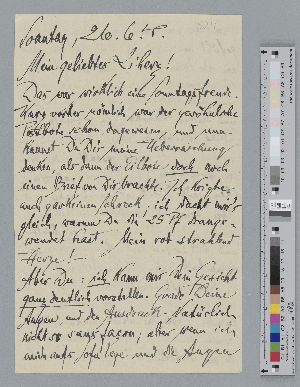 Sonntag, 26.6.
Mein geliebtes Ziherz!
Das war wirklich eine Sonntagsfreude.
Kurz vorher nämlich war der gewöhnliche
Postbote schon dagewesen, und nun
kannst Du Dir meine Ueberraschung
denken, als dann der Eilbote doch noch
einen Brief von Dir brachte. Ich kriegte
auch gar keinen Schreck. ich dacht mir's
gleich, warum Du die 25 Pf drange-
wendet hast. Mein rot strahlend
Herze! —
Aber Du: ich kann mir Dein Gesicht
ganz deutlich vorstellen. Grade Deine
Augen und den Ausdruck. Natürlich
nicht so sans façon, aber wenn ich
mich aufs Sofa lege und die Augen